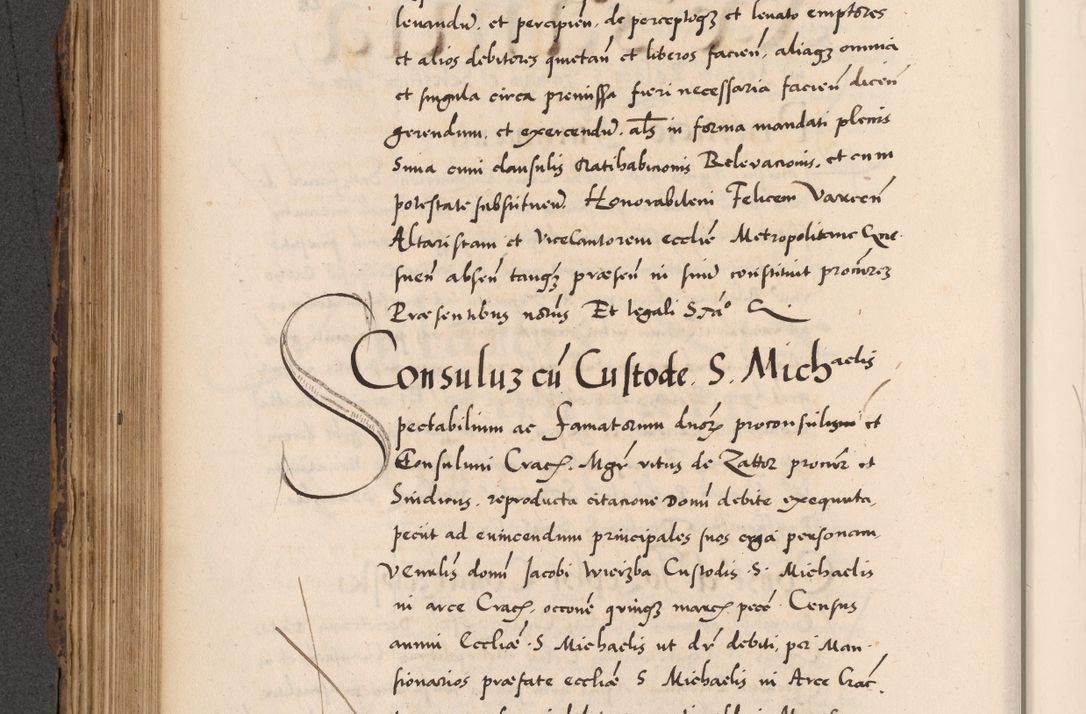 levandũ, et percipieñ, de perceptisqȝ et levato emptores
et alios debitores quietañ et liberos facieñ, aliaqȝ omnia
et singula circa premissa fieri necessaria facieñ diceñ
gerendum, et exercendũ, als in forma mandati plenis
Sima cum clausulis Ratihabicionis Relevacionis, et cum
potestate substituendi. Honorabilem Felicem
Altaristam et ViceCantorem ecclie Metropolitane Gne
sneñ abseñ tanqȝ præseñ in simul constituit procures
Præsentibus notariis Et legali
Consuluȝ cũ Custode. S. Michaelis
Spectabilium ac Famatorum dnoꝝ proconsulum et
Consulum Crac. Mgr vitus de Zator procur et
Sindicus, reproducta citacione Domi debite exequuta,
peciit ad evincendum principales suos erga personam
Veñlis domi Iacobi Wierzba Custodis S. Michaelis
in arce Crac, occoñe quinqȝ marc pece Census
annui Eccliæ S Michaelis ut dr debiti, per Man
sionarios præfate eccliæ S Michaelis in Arce Crac.